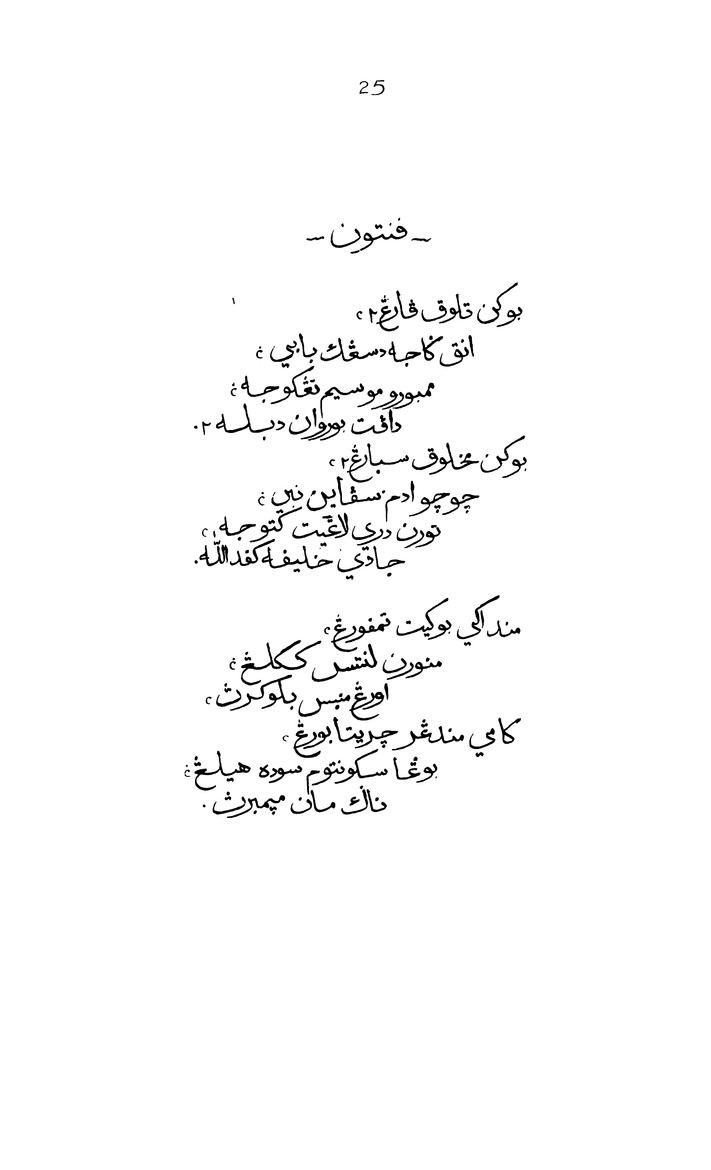 25
ـ فنتون ـ
بوكن تلوق ڤارڠ٢ ⹁
انق ݢاجه دسڠك بابي ⁏
ممبورو موسيم تڠكوجه ⁏
داڤت بوروان دبله٢.
بوكن مخلوق سبارڠ٢ ⹁
چوچو ادم سڤاين نبي ⁏
تورن دري لاڠيت كتوجه ⹁
جادي خليفه كفد الله.
منداكي بوكيت تمفورڠ ⹁
منورن لنتس ككلڠ ⁏
اورڠ منبس بلوكرڽ ⹁
كامي مندڠر چريتا بورڠ ⹁
بوڠا سكونتوم سوده هيلڠ ⁏
ناك مان ميمبرڽ.